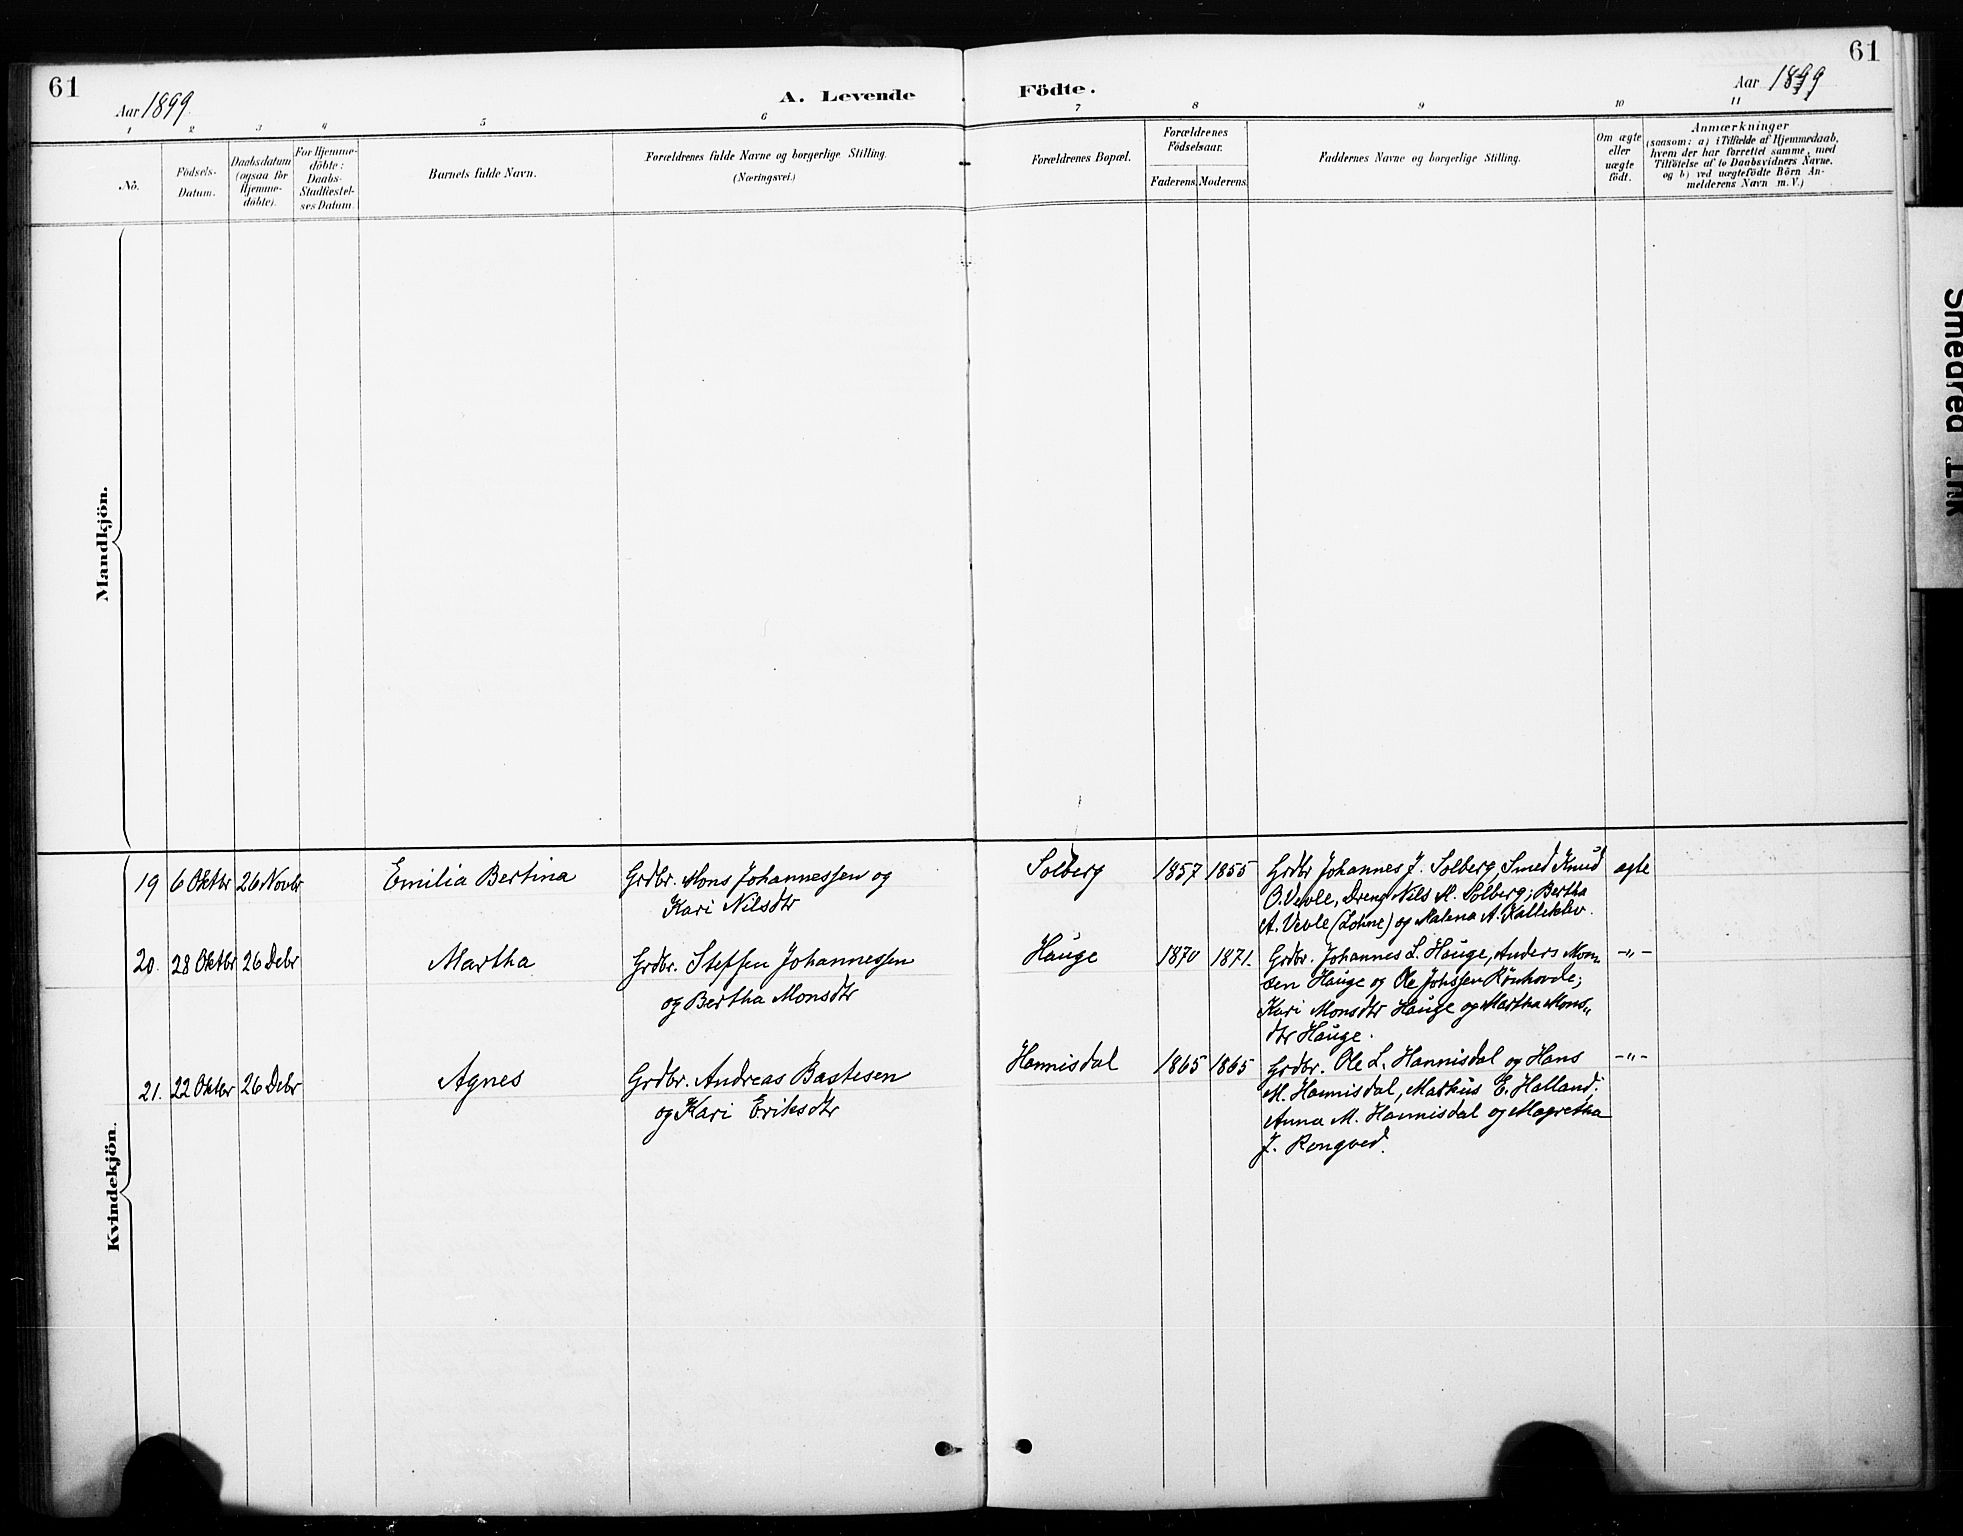 61
61
Aar 1899
A. Levende
Födte.
Aar 1899
1
2
3
4
5
6
7
8
9
10
11
No.
Födsels-
Datum.
Daabsdatum
(ogsaa for
Hjemme-
döbte).
For Hjemme-
döbte:
Daabs-
Stadfæstel-
ses Datum.
Barnets fulde Navn.
Forældrenes fulde Navne og borgerlige Stilling.
(Næringsvei.)
Forældrenes Bopæl.
Forældrenes
Födselsaar.
Faderens.
Moderens.
Faddernes Navne og borgerlige Stilling.
Om ægte
eller
uægte
födt.
Anmærkninger
(saasom: a) i Tilfælde af Hjemmedaab,
hvem der har forrettet samme, med
Tilföielse af to Daabsvidners Navne.
og b) ved uægtefödte Börn An-
melderens Navn m.V.)
Mandkjön.
Kvindekjön.
19 6 Oktbr 26 Novbr Emilia Bertina Grdbr. Mons Johannessen og
Kari Nilsdtr
Solberg 1857 1855 Grdbr Johannes J. Solberg, Smed Knud
O. Vevle, Dreng Nils M. Solberg; Bertha
A. Vevle (Lohne) og Malena A. Kalleklev.
ægte
20. 28 Oktbr 26 Debr Martha Grdbr. Steffen Johannessen
og Bertha Monsdtr
Hauge 1870 1871. Grdbr. Johannes L. Hauge, Anders Mon-
sen Hauge og Ole Johssen Rönhovde;
Kari Monsdtr Hauge og Martha Mons-
dtr Hauge.
-"-
21. 22 Oktbr 26 Debr Agnes Grdbr. Andreas Bastesen
og Kari Eriksdtr
Hannisdal 1865 1865 Grdbr. Ole L. Hannisdal og Hans
M. Hannisdal, Markus E. Halland;
Anna M. Hannisdal og Magretha
J. Rongved.
-"-
Smeared Ink